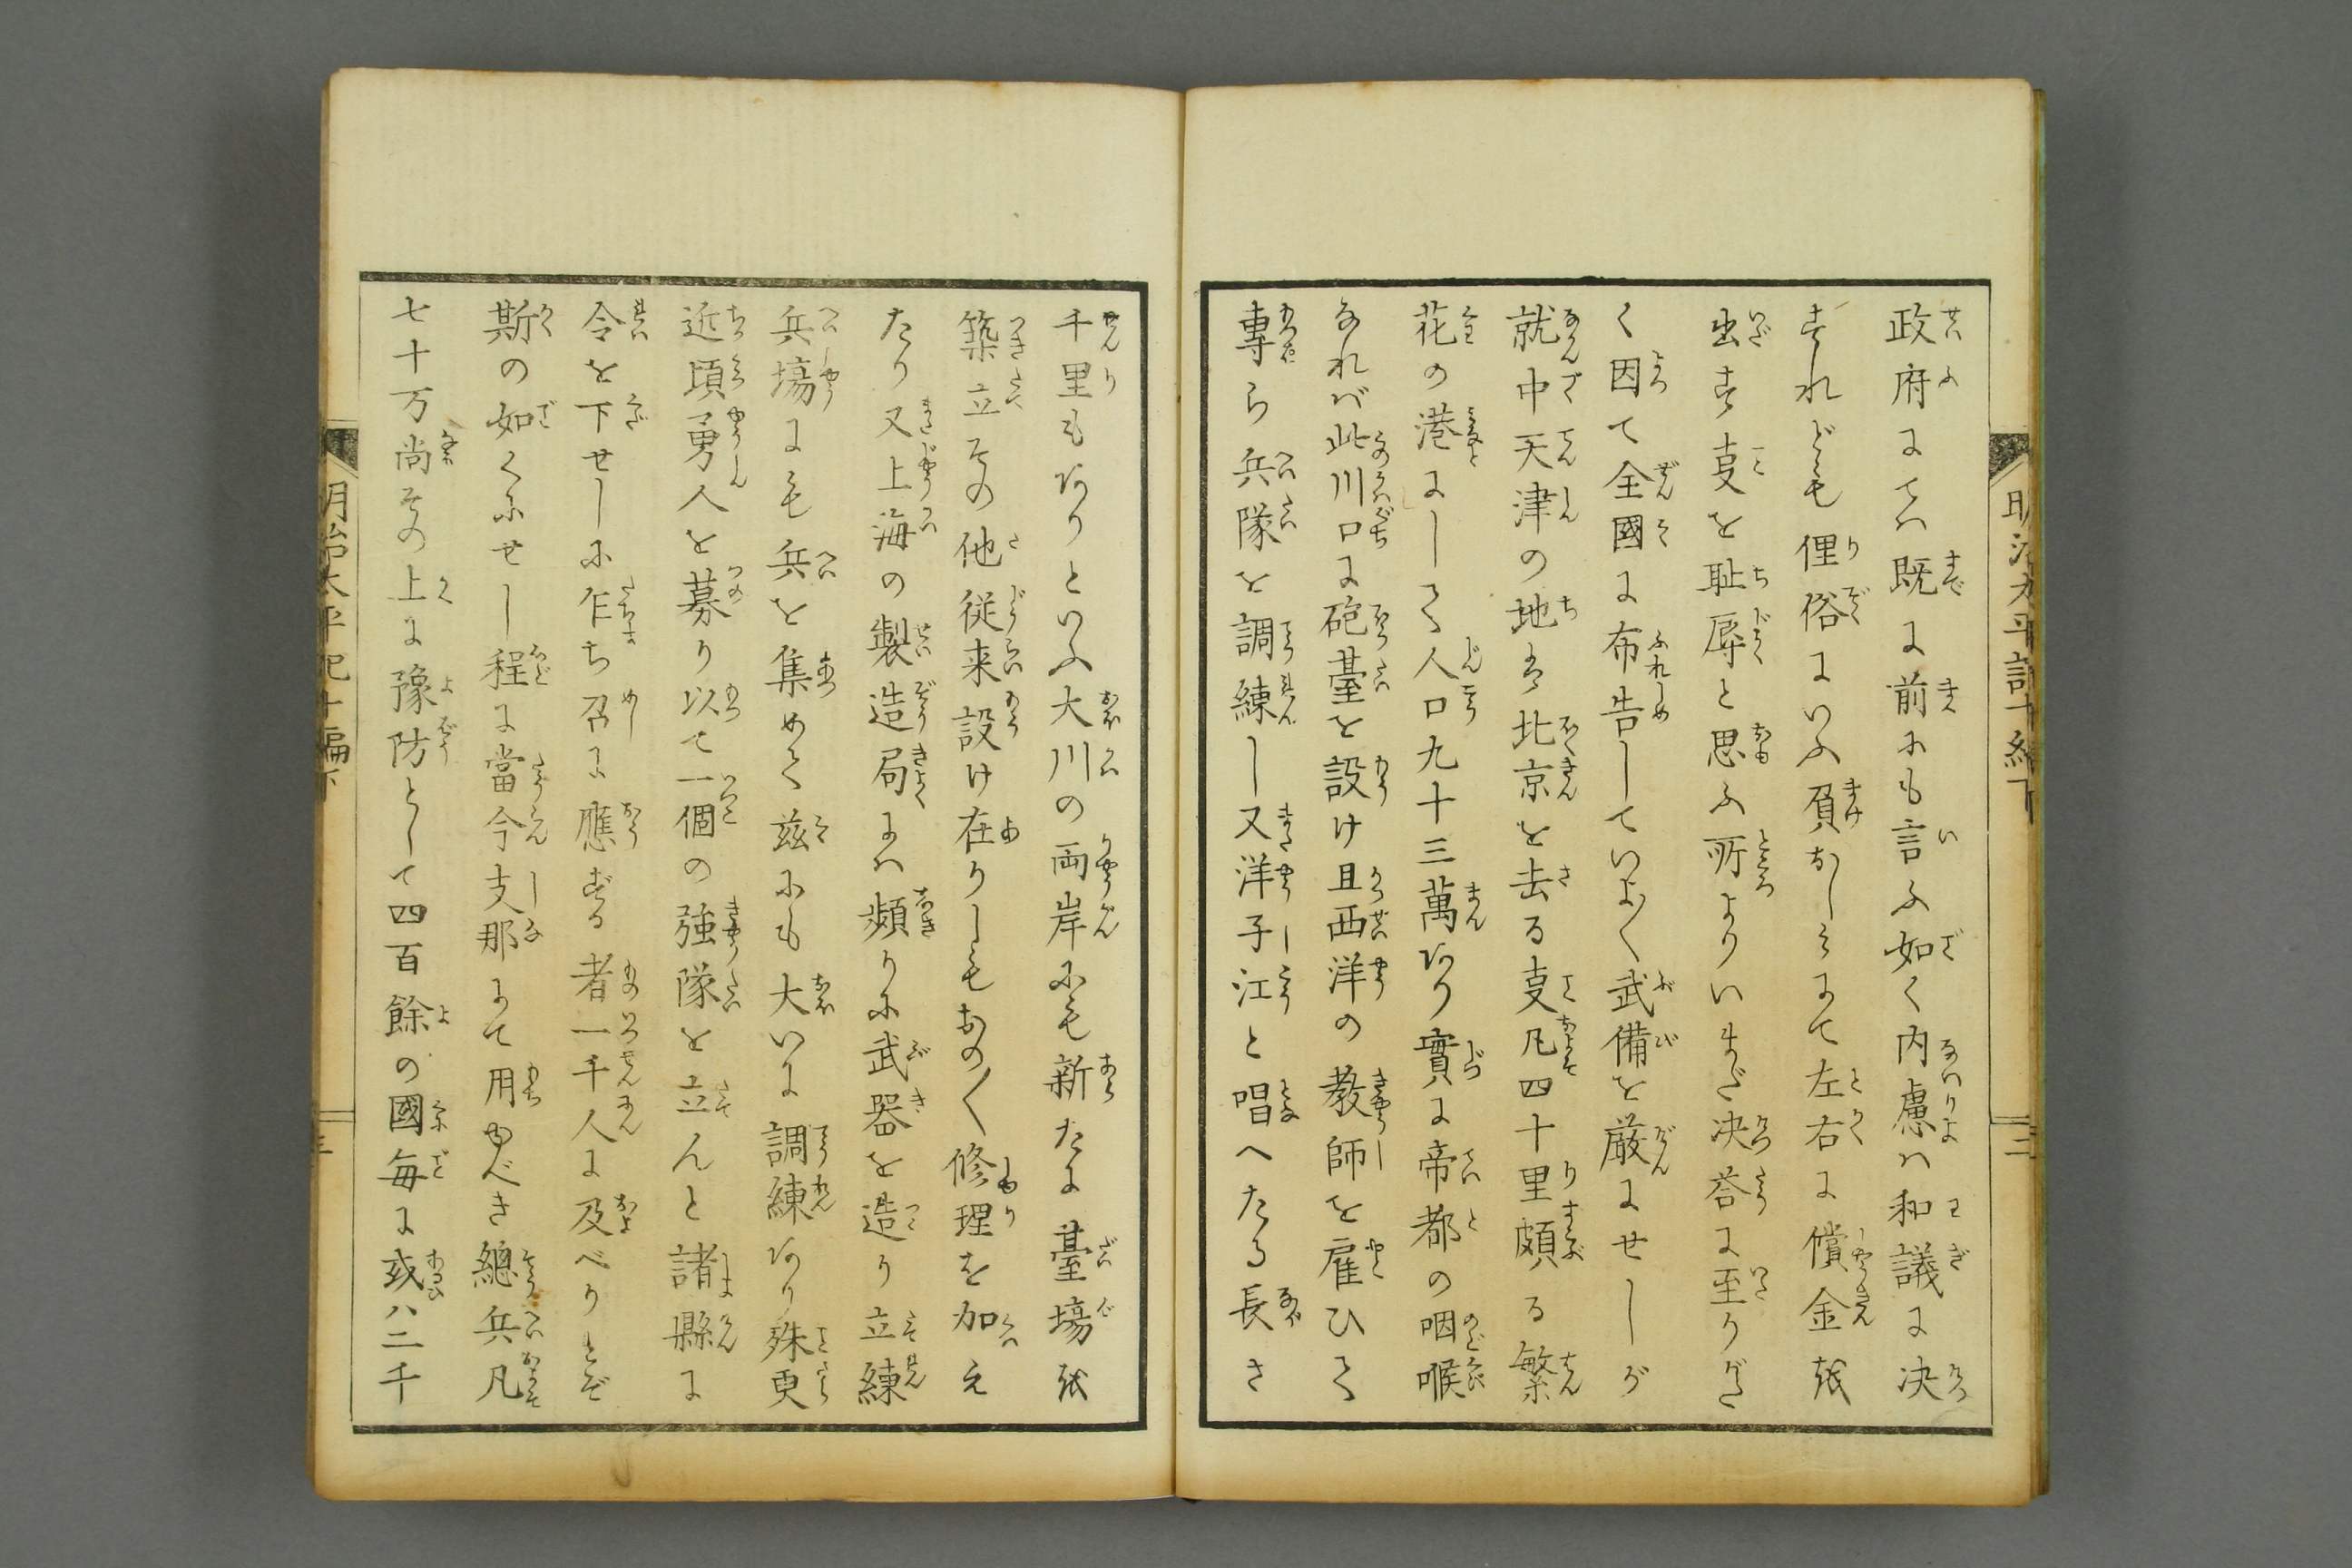 政府にては既に前にも言ふ如く内慮ハ和議に決
すれども俚俗にいふ負おしみにて左右に償金を
出す叓を耻辱と思ふ所よりいまだ决答に至りがた
く因て全國に布告していよ〱武備を厳にせしが
就中天津の地は北京を去る叓凡四十里頗る繁
花の港にして人口九十三萬あり實に帝都の咽喉
なれバ此川口に砲臺を設け且西洋の教師を雇ひて
専ら兵隊を調練し又洋子江と唱へたる長さ
千里もありといふ大川の両岸にも新たに臺塲を
築立その他従来設け在りしもおの〱修理を加え
たり又上海の製造局にハ頻りに武器を造り立練
兵塲にも兵を集めて茲にも大いに調練あり殊更
近頃勇人を募り以て一個の強隊を立んと諸縣に
令を下せしに乍ち召に應ずる者一千人に及べりとぞ
斯の如くにせし程に當今支那にて用ゆべき總兵凡
七十万尚その上に豫防として四百餘の國毎に或ハ二千
明治太平記十編下
三
明治太平記十編下
三